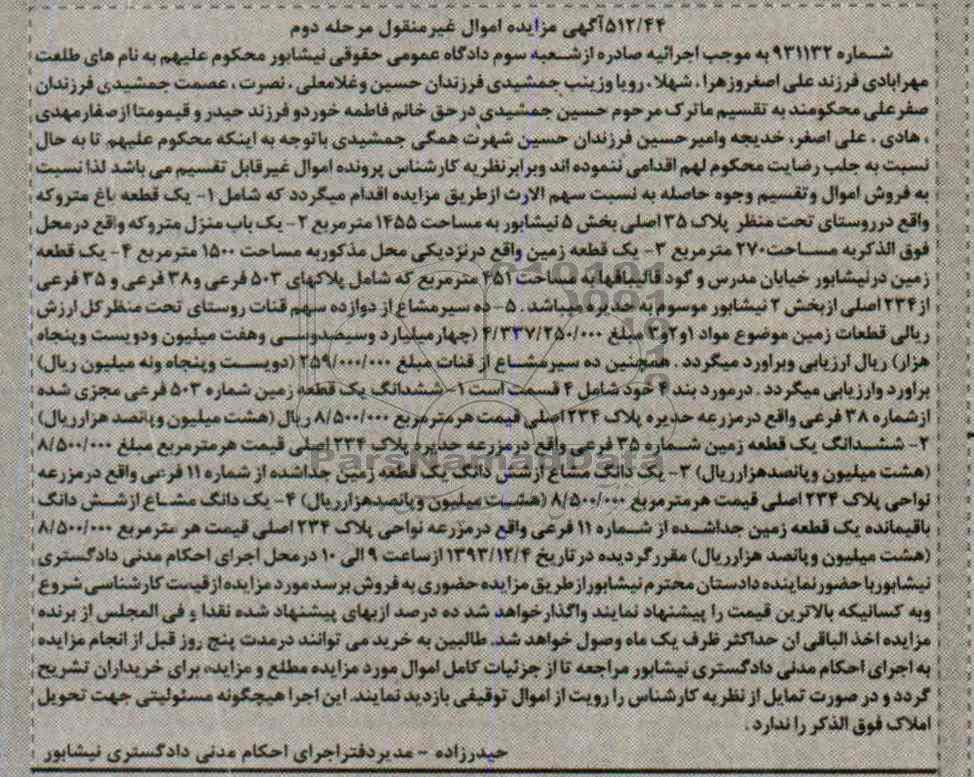 ۵۱۲/۴۴آگهی مزایده اموال غیرمنقول مرحله دوم
شماره ۹۳۱۱۳۲ به موجب اجرائیه صادره ازشعبه سوم دادگاه عمومی حقوقی نیشابور محکوم علیهم به نام های طلعت
مهرابادی فرزند علی اصغروزهرا ، شهلا ، رویا وزینب جمشیدی فرزندان حسین وغلامعلی ، نصرت ، عصمت جمشیدی فرزندان
صفرعلی محکومند به تقسیم ماترک مرحوم حسین جمشیدی درحق خانم فاطمه خوردو فرزند حیدر و قیمومتا ازصغارمهدی
، هادی ، علی اصغر، خدیجه وامیرحسین فرزندان حسین شهرت همگی جمشیدی باتوجه به اینکه محکوم علیهم تا به حال
نسبت به جلب رضایت محکوم لهم اقدامی ننموده اند وبرابرنظریه کارشناس پرونده اموال غیرقابل تقسیم می باشد لذا نسبت
به فروش اموال وتقسیم وجوه حاصله به نسبت سهم الارث ازطریق مزایده اقدام میگردد که شامل ۱- یک قطعه باغ متروکه
واقع درروستای تحت منظر پلاک ۳۵ اصلی بخش ۵ نیشابور به مساحت ۱۴۵۵ مترمربع ۲- یک باب منزل متروکه واقع درمحل
فوق الذکربه مساحت۲۷۰ مترمربع ۳- یک قطعه زمین واقع درنزدیکی محل مذکوربه مساحت ۱۵۰۰ مترمربع ۴- یک قطعه
زمین درنیشابور خیابان مدرس و گود قالیبافهابه مساحت ۴۵۱ مترمربع که شامل پلاکهای ۵۰۳ فرعی و۳۸ فرعی و ۳۵ فرعی
از۲۳۴ اصلی ازبخش ۲ نیشابور موسوم به حدیره میباشد . ۵- ده سیرمشاع از دوازده سهم قنات روستای تحت منظرکل ارزش
ریالی قطعات زمین موضوع مواد ۱و۲و۳ مبلغ ۴/۳۳۷/۲۵۰/۰۰۰ (چهارمیلیارد وسیصدوسی وهفت میلیون ودویست وپنجاه
هزار) ریال ارزیابی وبراورد میگردد . همچنین ده سیرمشاع از قنات مبلغ ۲۵۹/۰۰۰/۰۰۰ (دویست وپنجاه ونه میلیون ریال)
براورد وارزیابی میگردد . درمورد بند ۴ خود شامل ۴ قسمت است ۱- ششدانگ یک قطعه زمین شماره ۵۰۳ فرعی مجزی شده
ازشماره ۳۸ فرعی واقع درمزرعه حدیره پلاک ۲۳۴ اصلی قیمت هرمترمربع ۸/۵۰۰/۰۰۰ ریال (هشت میلیون وپانصد هزارریال)
۲- ششدانگ یک قطعه زمین شماره ۳۵ فرعی واقع درمزرعه حدیره پلاک ۲۳۴ اصلی قیمت هرمترمربع مبلغ ۸/۵۰۰/۰۰۰
(هشت میلیون وپانصدهزارریال) ۳- یک دانگ مشاع ازشش دانگ یک قطعه زمین جداشده از شماره ۱۱ فرعی واقع درمزرعه
نواحی پلاک ۲۳۴ اصلی قیمت هرمترمربع ۸/۵۰۰/۰۰۰ (هشت میلیون وپانصدهزارریال) ۴- یک دانگ مشاع ازشش دانگ
باقیمانده یک قطعه زمین جداشده از شماره ۱۱ فرعی واقع درمزرعه نواحی پلاک ۲۳۴ اصلی قیمت هر مترمربع ۸/۵۰۰/۰۰۰
(هشت میلیون وپانصد هزارریال) مقررگردیده درتاریخ ۱۳۹۳/۱۲/۴ ازساعت ۹ الی ۱۰ درمحل اجرای احکام مدنی دادگستری
نیشابوربا حضورنماینده دادستان محترم نیشابورازطریق مزایده حضوری به فروش برسد مورد مزایده ازقیمت کارشناسی شروع
وبه کسانیکه بالاترین قیمت را پیشنهاد نمایند واگذارخواهد شد ده درصد ازبهای پیشنهاد شده نقدا و فی المجلس از برنده
مزایده اخذ الباقی ان حداکثر ظرف یک ماه وصول خواهد شد. طالبین به خرید می توانند درمدت پنج روز قبل از انجام مزایده
به اجرای احکام مدنی دادگستری نیشابور مراجعه تا از جزئیات کامل اموال مورد مزایده مطلع و مزایده برای خریداران تشریح
گردد و در صورت تمایل از نظریه کارشناس را رویت از اموال توقیفی بازدید نمایند. این اجرا هیچگونه مسئولیتی جهت تحویل
املاک فوق الذکر را ندارد.
حیدرزاده - مدیردفتراجرای احکام مدنی دادگستری نیشابور
ParsNamadData